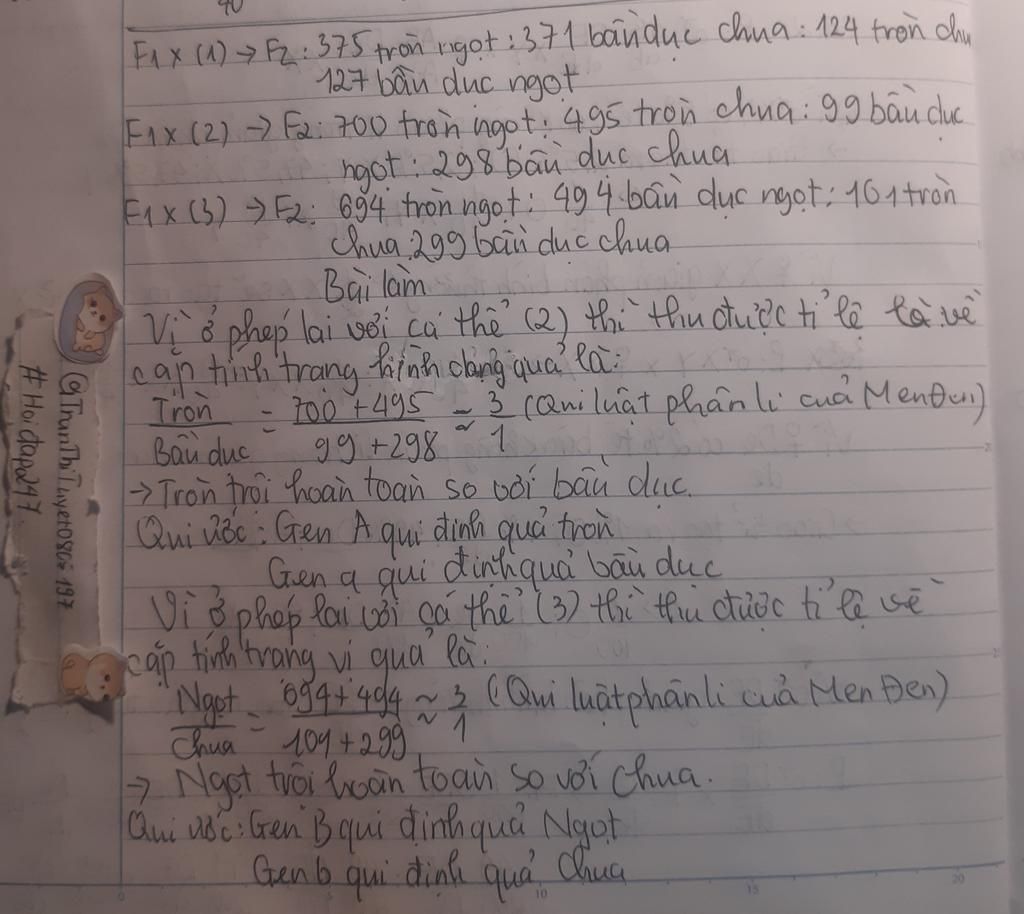 40
F1 x (1) → F2: 375 tròn ngọt : 371 bầu dục chua : 124 tròn chu
127 bầu dục ngọt
F1 x (2) → F2: 700 tròn ngọt : 495 tròn chua : 99 bầu dục
ngọt : 298 bầu dục chua
F1 x (3) → F2: 694 tròn ngọt : 494 bầu dục ngọt : 101 tròn
chua : 299 bầu dục chua
Bài làm
Vì ở phép lai với cá thể (2) thì thu được tỉ lệ là về
cặp tính trạng hình dạng quả là:
Tròn / Bầu dục = 700 + 495 / 99 + 298 ≈ 3 / 1 (Qui luật phân li của MenĐen)
→ Tròn trội hoàn toàn so với bầu dục.
Qui ước : Gen A qui định quả tròn
Gen a qui định quả bầu dục
Vì ở phép lai với cá thể (3) thì thu được tỉ lệ về
cặp tính trạng vị quả là:
Ngọt / Chua = 694 + 494 / 101 + 299 ≈ 3 / 1 (Qui luật phân li của MenĐen)
→ Ngọt trội hoàn toàn so với chua.
Qui ước : Gen B qui định quả Ngọt
Gen b qui định quả chua
@TranThiTuyet086197
#Hoidap247
0
10
15
20